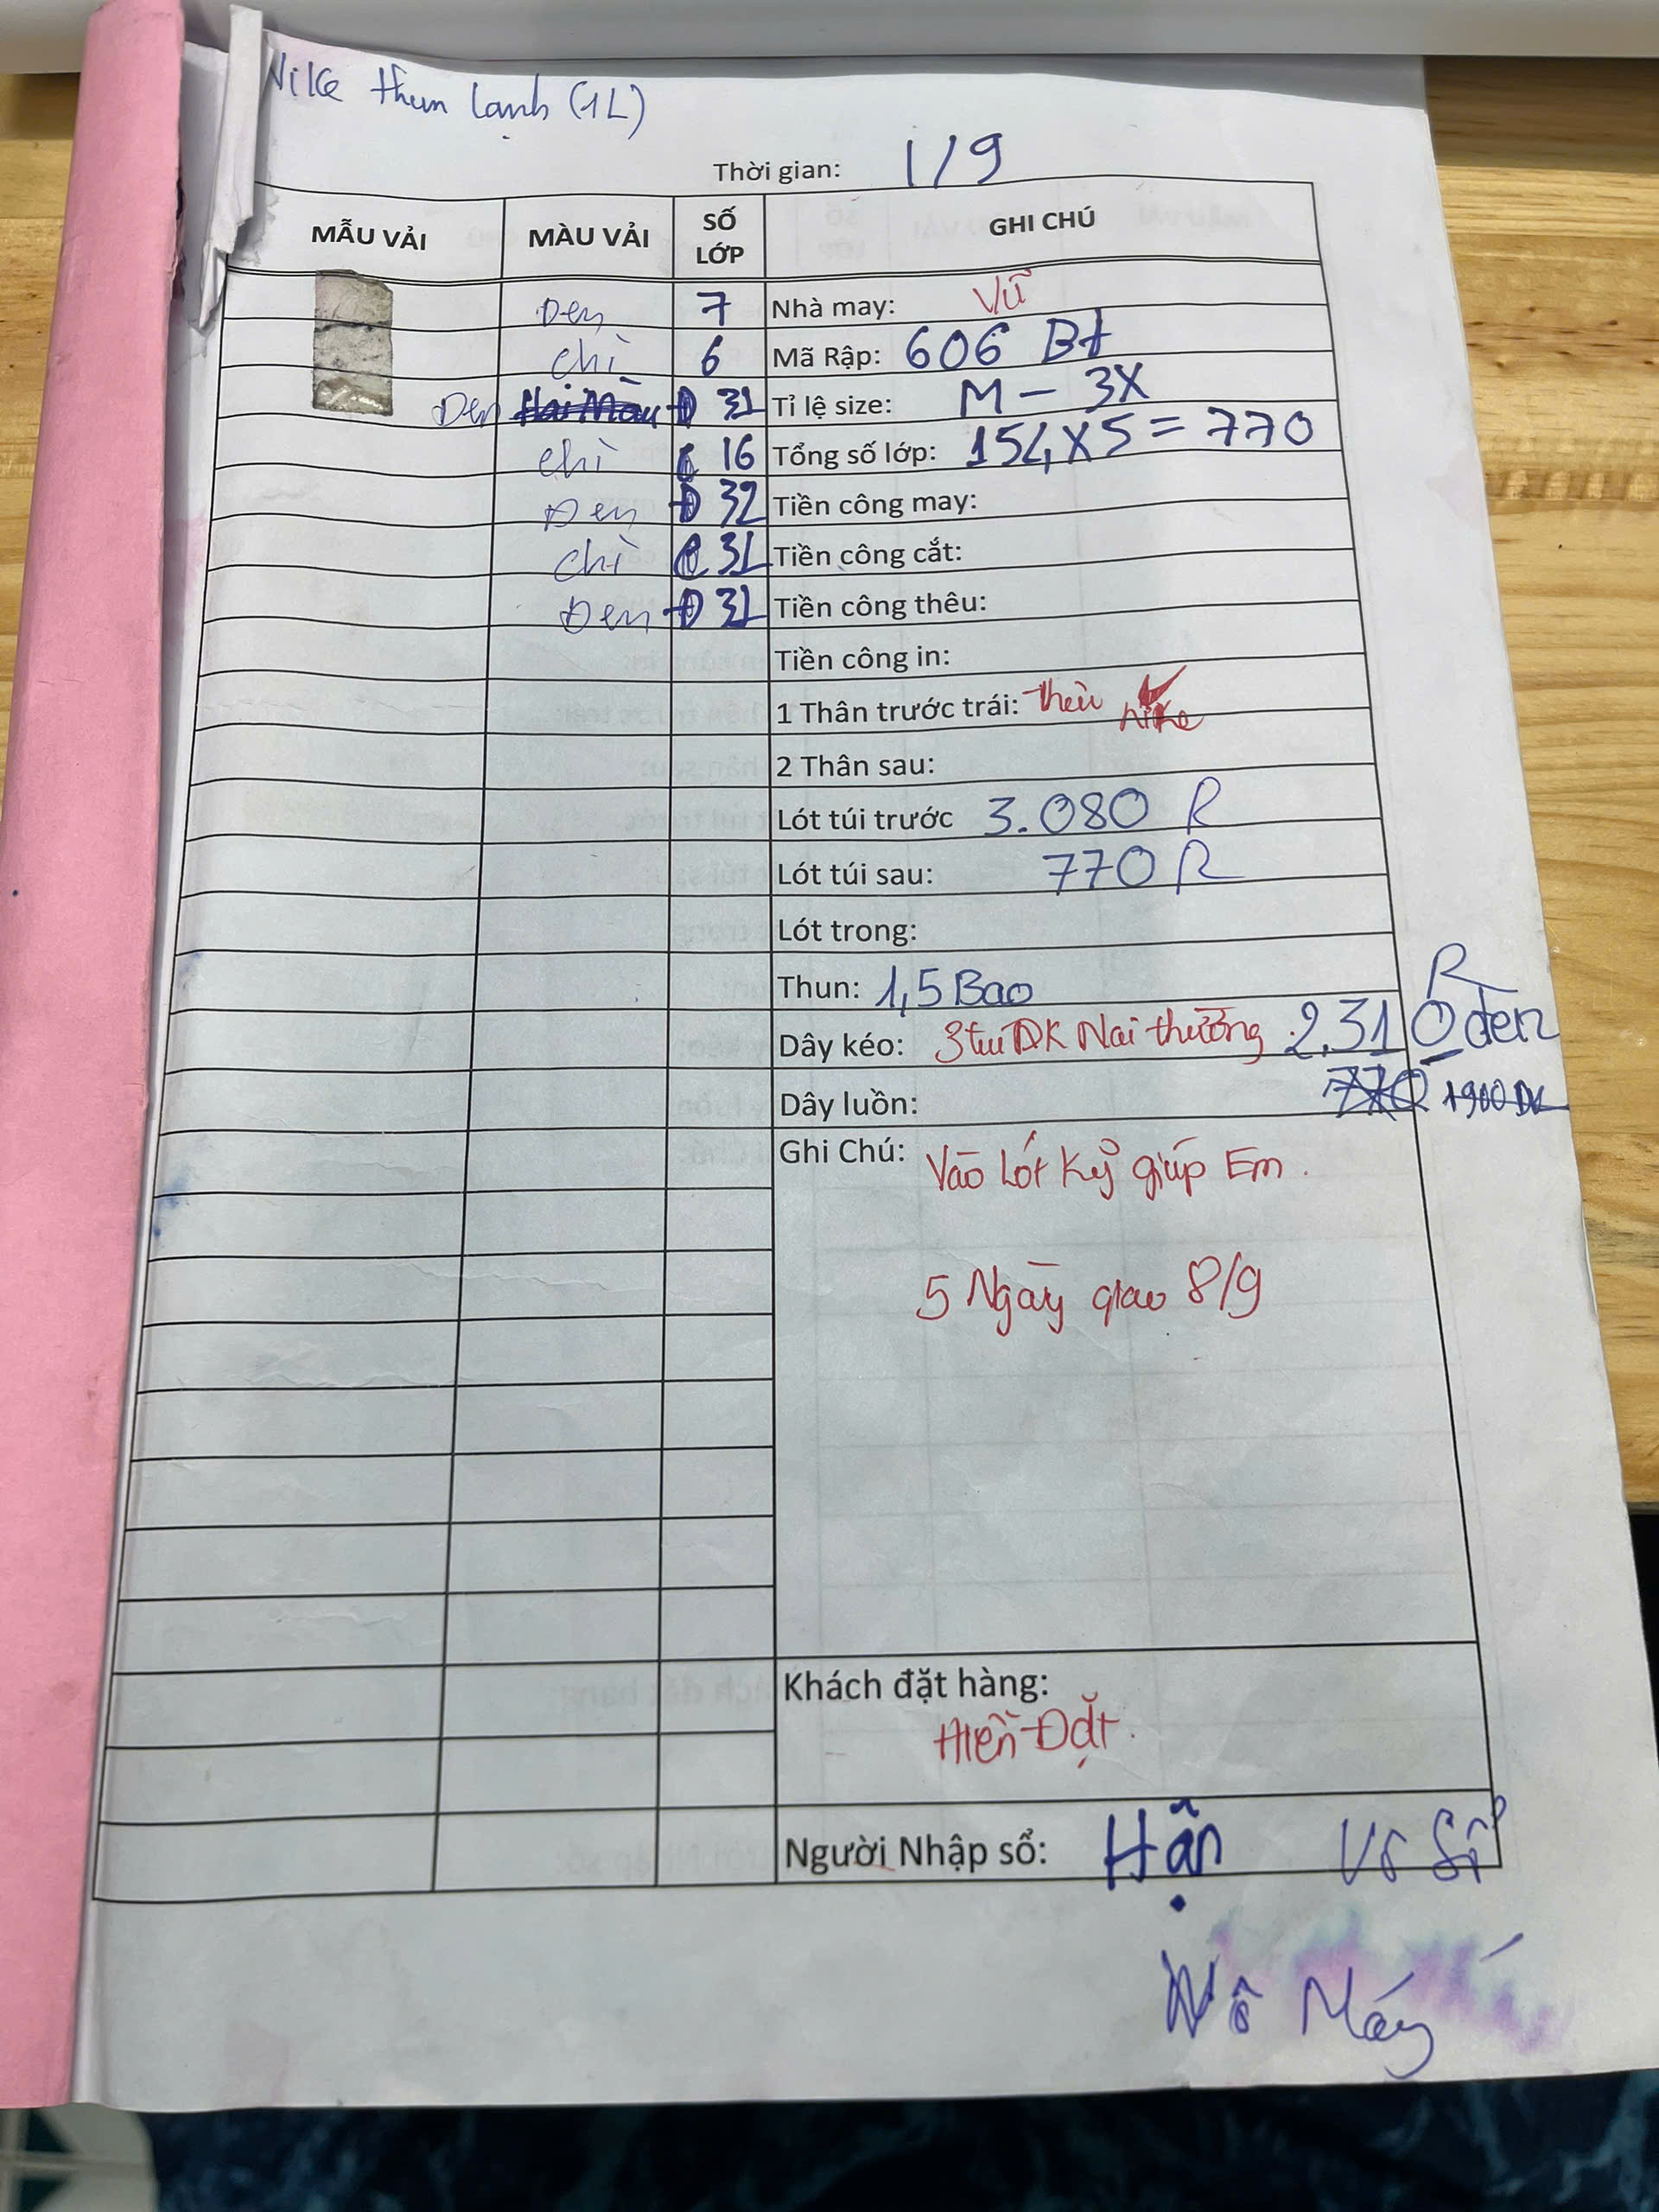 Nike thun lạnh (1L)
Thời gian: 1/9
MẪU VẢI MÀU VẢI SỐ LỚP GHI CHÚ
Đen 7 Nhà may: Vũ
chì 6 Mã Rập: 606 Bt
Đen Đ 31 Tỉ lệ size: M - 3X
chì C 16 Tổng số lớp: 154 x 5 = 770
Đen Đ 32 Tiền công may:
chì C 31 Tiền công cắt:
Đen Đ 31 Tiền công thêu:
Tiền công in:
1 Thân trước trái: Thêu nike
2 Thân sau:
Lót túi trước 3.080 R
Lót túi sau: 770 R
Lót trong:
Thun: 1,5 Bao R
Dây kéo: 3 túi DK Nai thường 2.310 đen
Dây luồn: 770 1900 DK
Ghi Chú: Vào Lót Kỹ giúp Em.
5 Ngày giao 8/9
Khách đặt hàng:
Hiền Đặt.
Người Nhập sổ: Hận Vô Sổ
Vô Máy